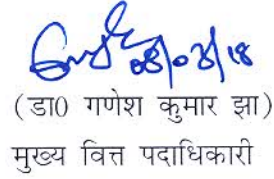 08/03/18
(डा0 गणेश कुमार झा)
मुख्य वित्त पदाधिकारी